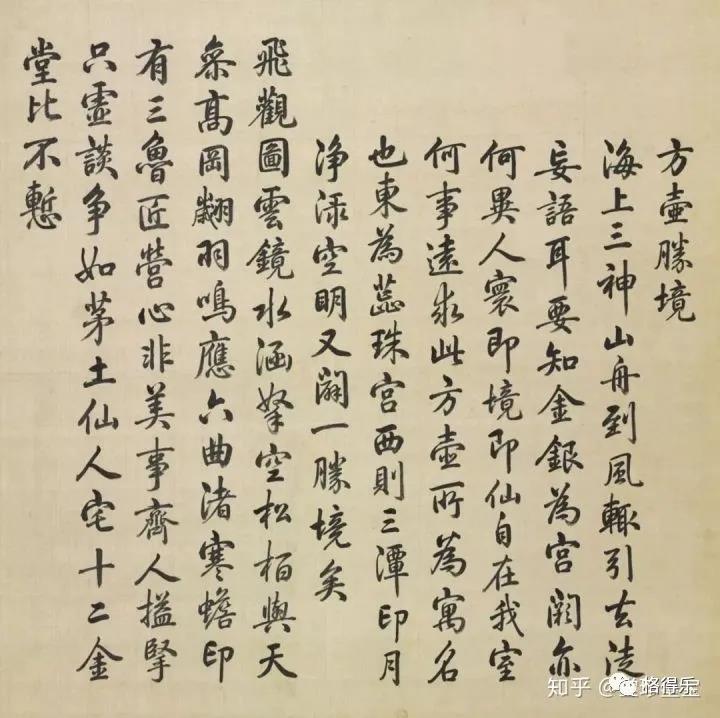 方壺勝境
海上三神山舟到風輒引去徒
妄語耳要知金銀為宮闕亦
何異人寰即境即仙自在我室
何事遠求此方壺所為寓名
也東為蕊珠宮西則三潭印月
淨淥空明又闢一勝境矣
飛觀圖雲鏡水涵拏空松栢與天
叅高岡翽羽鳴應六曲渚寒蟾印
有三魯匠營心非美事齊人搤掔
只虛談爭如茅土仙人宅十二金
堂比不慙
知乎
珞得乐